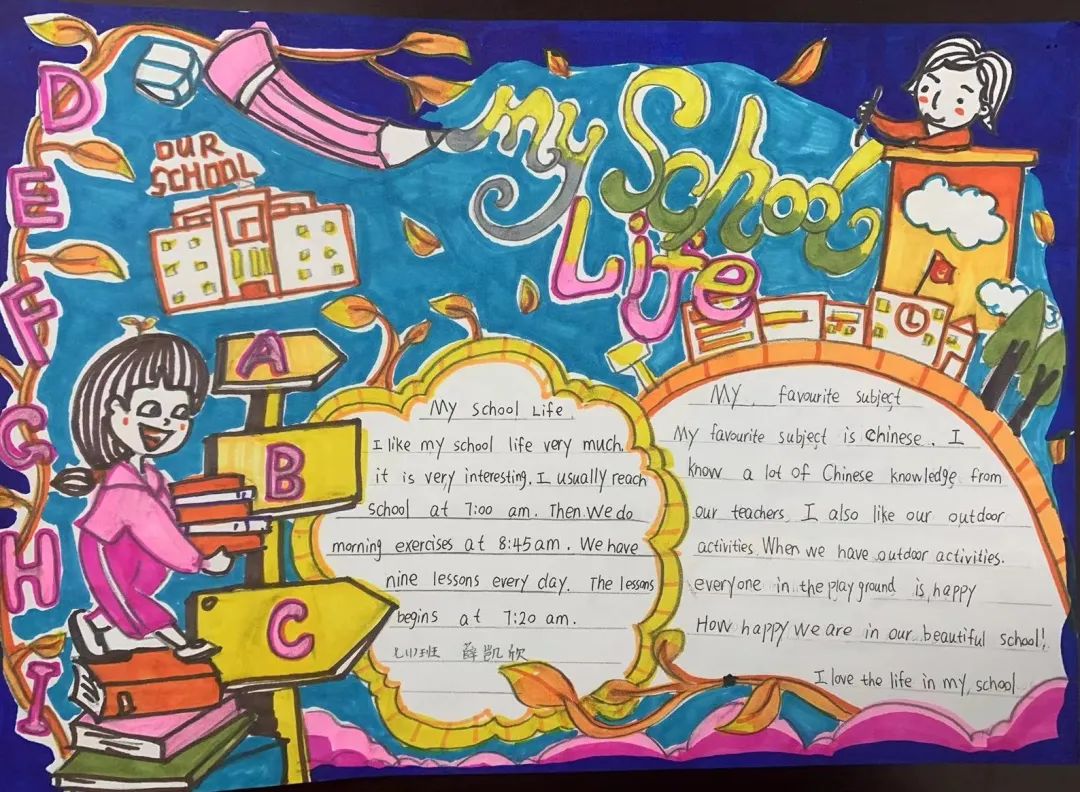 D
E
F
G
H
I
OUR
SCHOOL
My School
Life
A
B
C
My school Life.
I like my school life very much.
it is very interesting. I usually reach
school at 7:00 am. Then We do
morning exercises at 8:45 am. We have
nine lessons every day. The lessons
begins at 7:20 am.
七(1)班 薛凯欣
MY favourite subject
My favourite subject is Chinese. I
know a lot of Chinese knowledge from
our teachers. I also like our outdoor
activities. When we have outdoor activities.
everyone in the play ground is happy
How happy We are in our beautiful school!
I love the life in my school